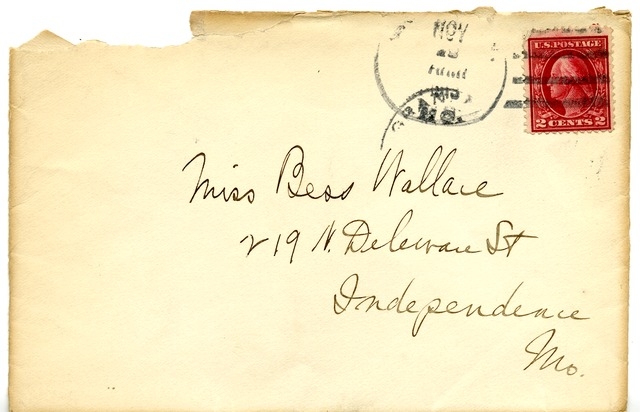 NOV
GRAND
MO.
U.S. POSTAGE
2 CENTS 2
Miss Bess Wallace
219 N. Deleware St
Independence
Mo.